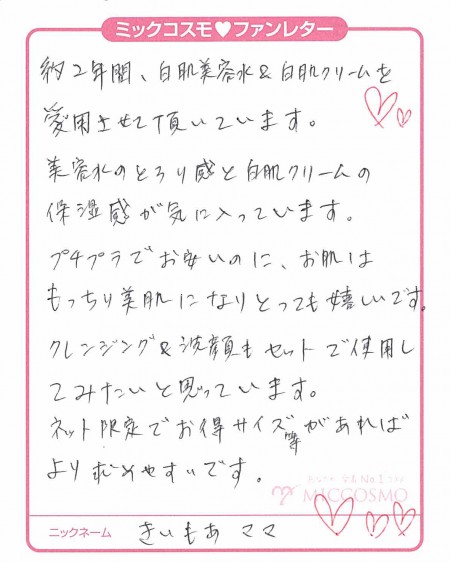 ミックコスモ♥ファンレター
約2年間、白肌美容水&白肌クリームを
愛用させて頂いています。
美容水のとろり感と白肌クリームの
保湿感が気に入っています。
プチプラでお安いのに、お肌は
もっちり美肌になりとっても嬉しいです。
クレンジング&洗顔もセットで使用し
てみたいと思っています。
ネット限定でお得サイズ等があれば
より求めやすいです。
MICCOSMO
ニックネーム きいもあママ